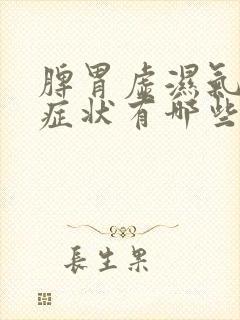 脾胃虚濕氣
症状有哪些
長生果